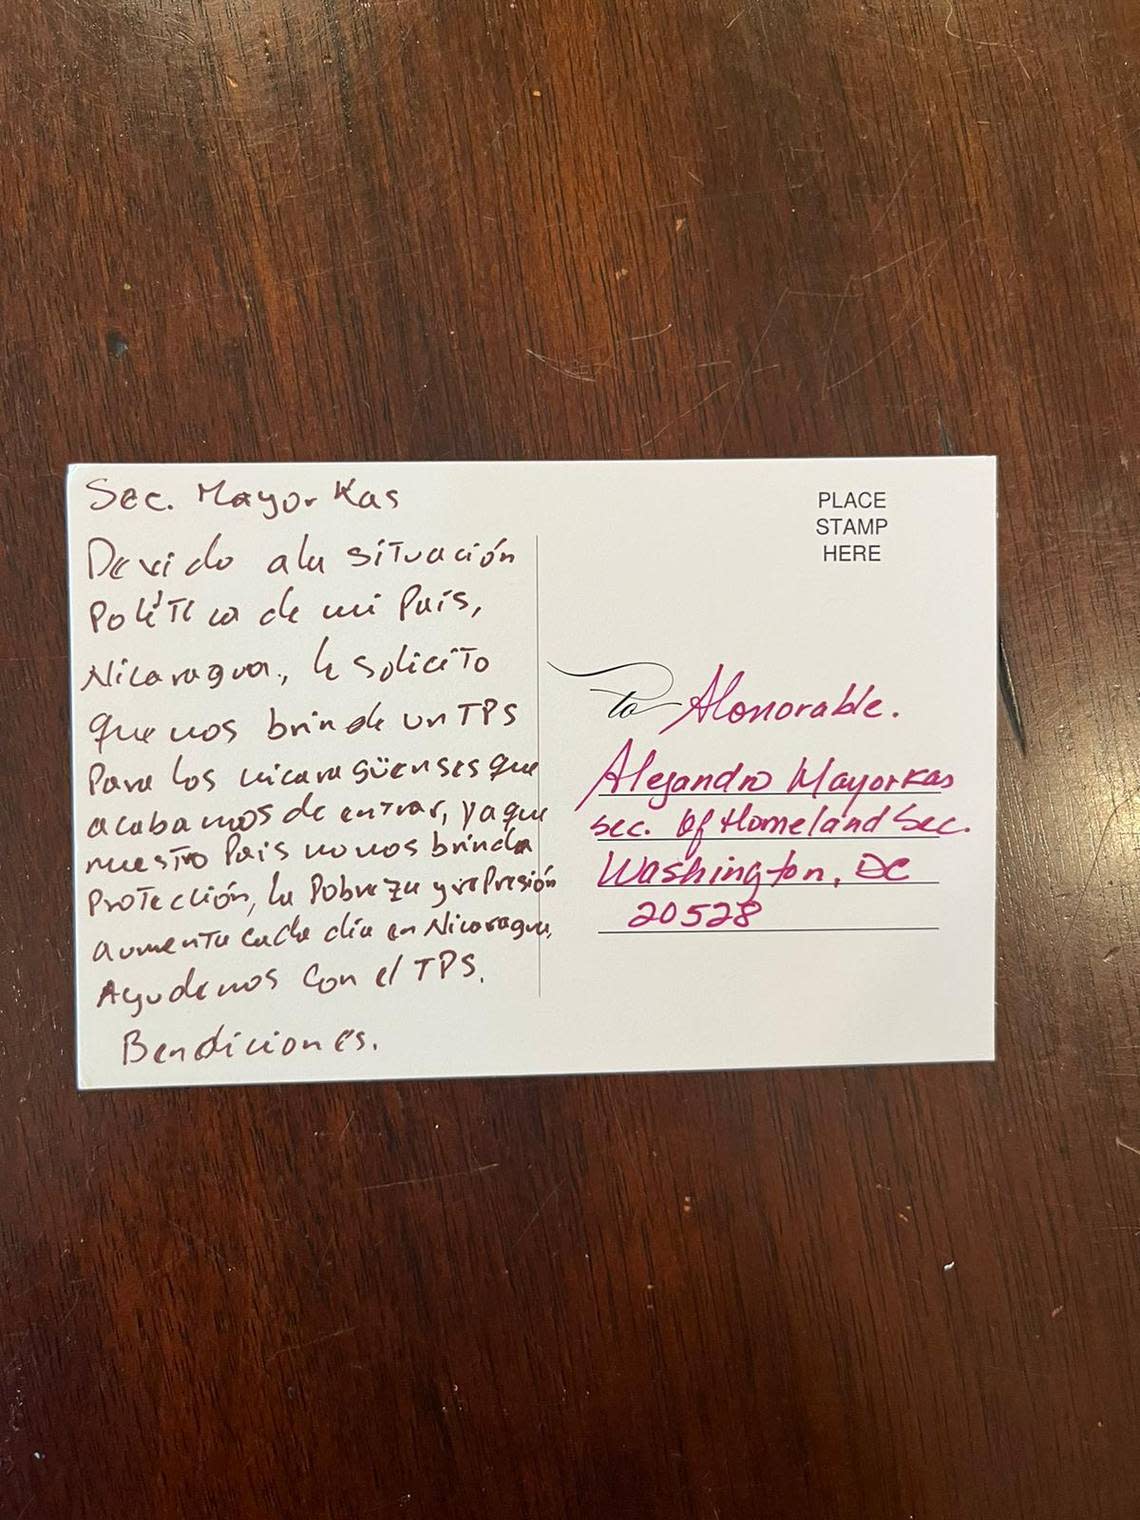 Sec. Mayorkas
Devido ala situación
Política de mi País,
Nicaragua, le solicito
que nos brinde un TPS
Para los nicaragüenses que
acabamos de entrar, ya que
nuestro País no nos brinda
Protección, la Pobreza y represión
aumenta cada día en Nicaragua,
Ayudenos con el TPS.
Bendiciones.
PLACE
STAMP
HERE
to Honorable.
Alejandro Mayorkas
Sec. Of Homeland Sec.
Washington, DC
20528